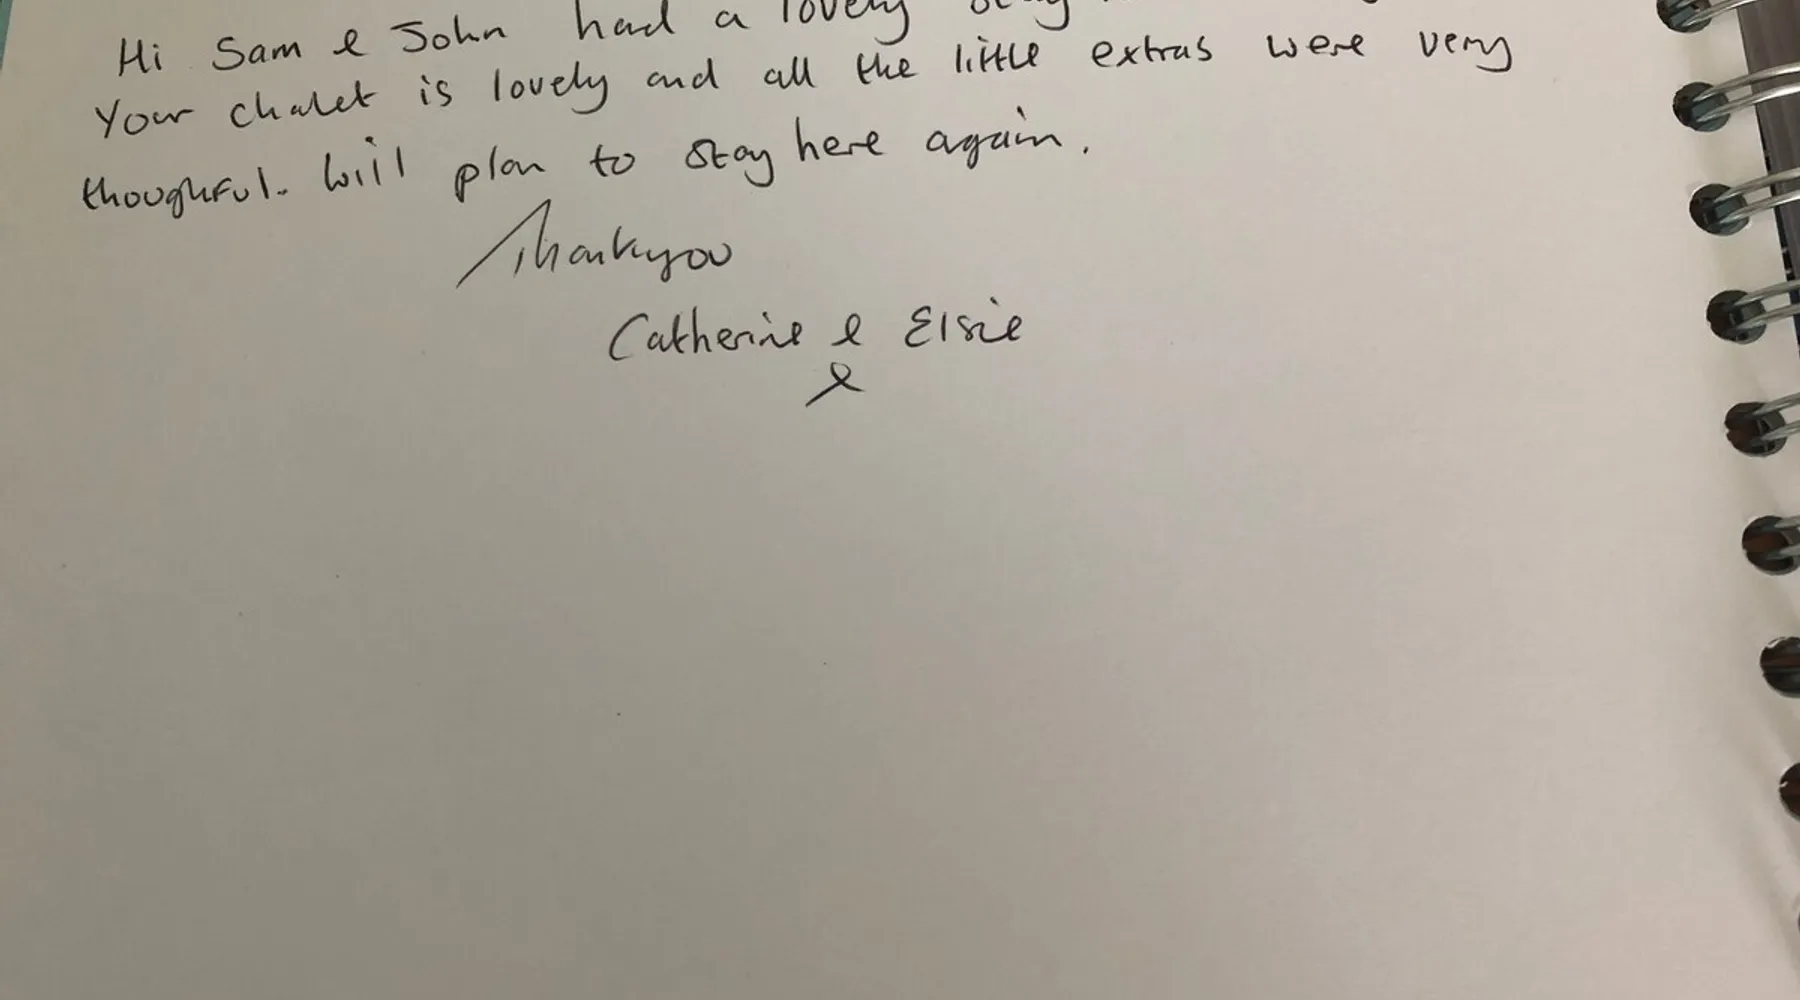 Hi Sam & John had a lovely stay
Your chalet is lovely and all the little extras were very
thoughful. Will plan to stay here again.
Thankyou
Catherine & Elsie
x